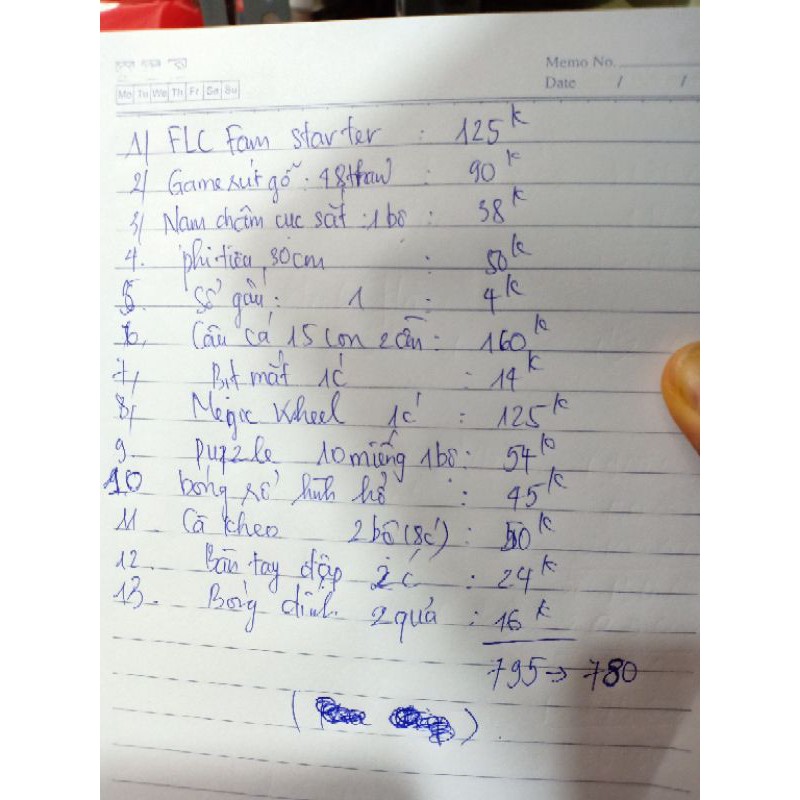 Memo No.
Date / /
Mo Tu We Th Fr Sa Su
1/ FLC Fam starter : 125k
2/ Game rút gỗ : 48 thanh : 90k
3/ Nam châm cục sắt : 1 bộ : 38k
4. phi tiêu 30cm : 50k
5. Số gấu : 1 : 4k
6, Câu cá 15 con 2 cần : 160k
7, Bịt mắt 1c : 14k
8, Megic Wheel 1c : 125k
9. puzzle 10 miếng 1 bộ : 54k
10 bóng rổ hình hổ : 45k
11. Cà kheo 2 bộ (8c) : 50k
12. Bàn tay đập 2c : 24k
13. Bóng dính 2 quả : 16k
795 → 780